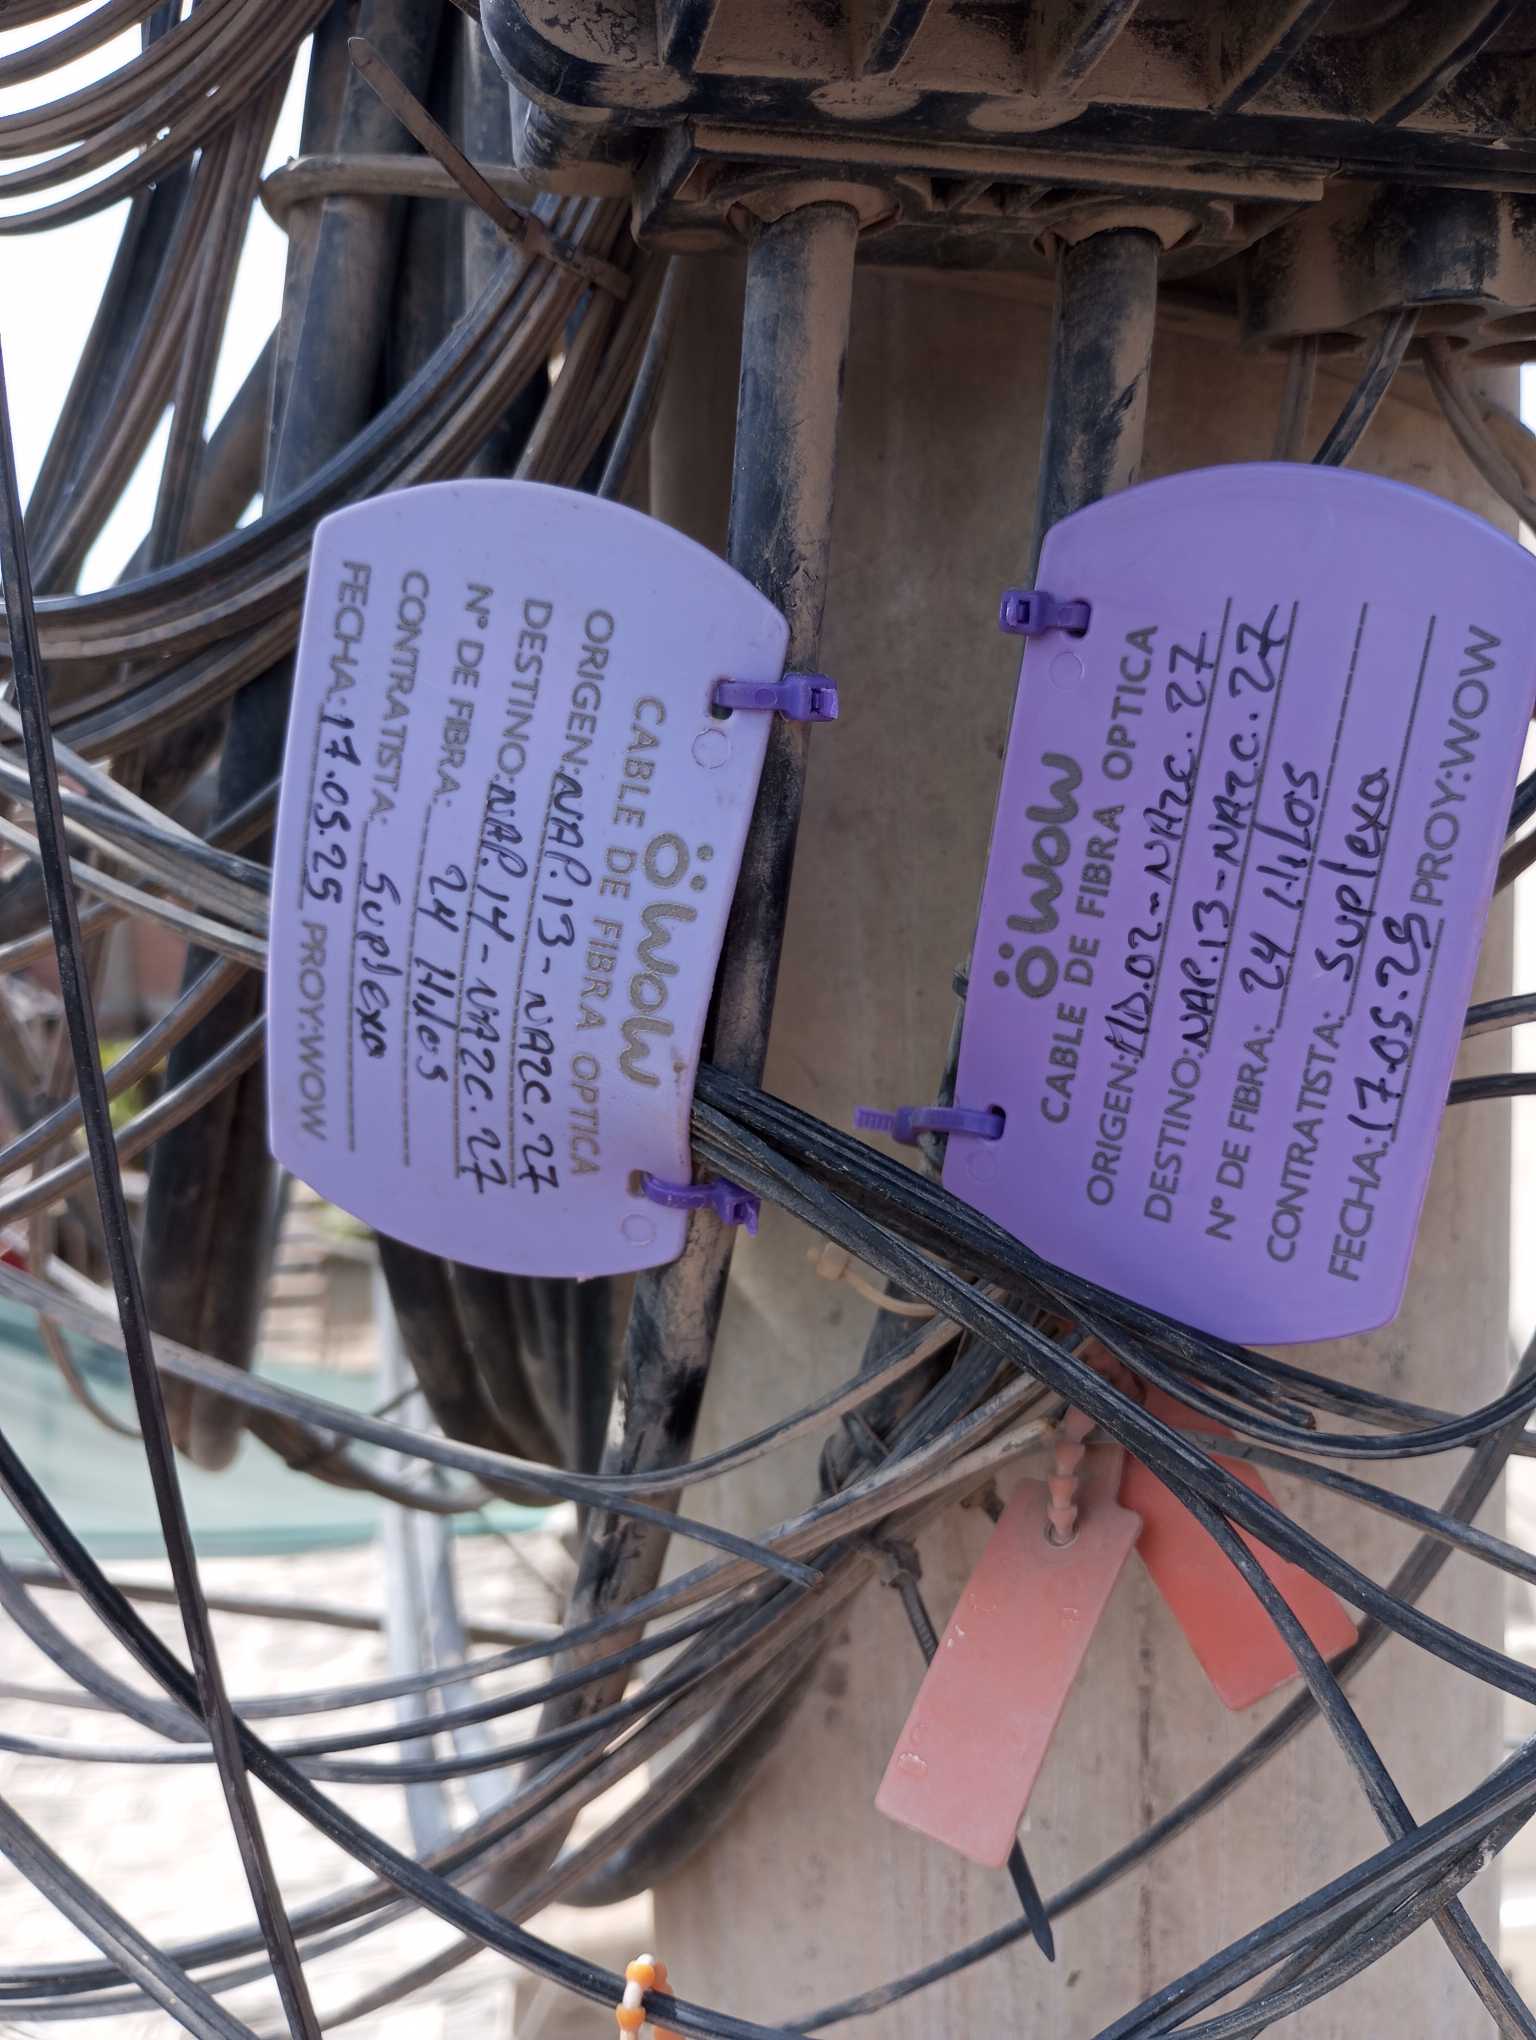 wow
CABLE DE FIBRA OPTICA
ORIGEN: NAP.13 - NAZC.27
DESTINO: NAP.14 - NAZC.27
N° DE FIBRA: 24 Hilos
CONTRATISTA: Suplexa
FECHA: 17.05.25 PROY: WOW
wow
CABLE DE FIBRA OPTICA
ORIGEN: FID.02 - NAZC.27
DESTINO: NAP.13 - NAZC.27
N° DE FIBRA: 24 HILOS
CONTRATISTA: Suplexa
FECHA: 17.05.25 PROY: WOW